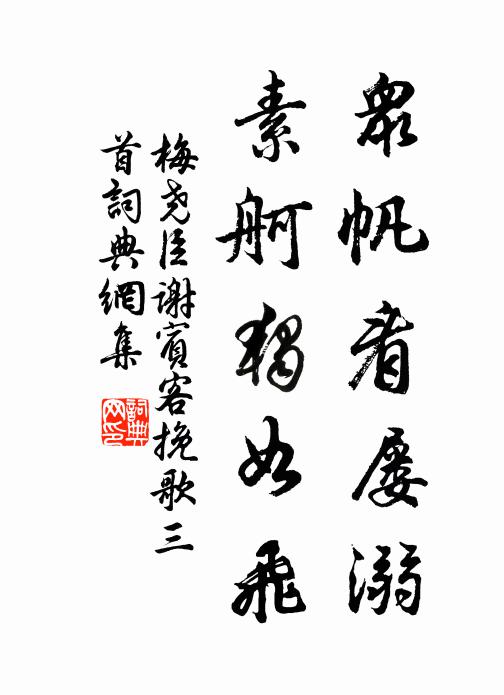 眾帆看屢溺
素舸獨如飛
梅堯臣謝賓客挽歌三
首詞典網集
詞典
网印